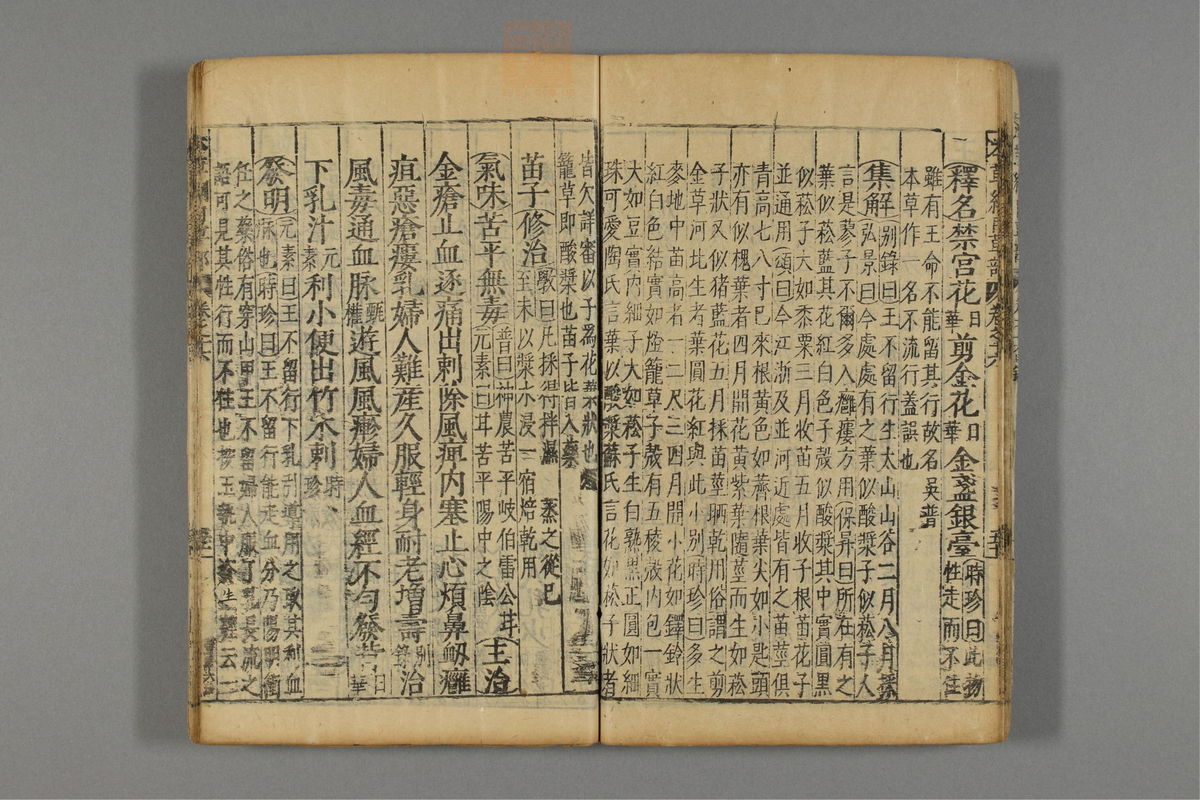 釋名禁宮花日華剪金花日華金盞銀臺時珍曰此物性走而不住
雖有王命不能留其行故名吳普
本草作一名不流行蓋誤也
集解别録曰王不留行生太山山谷二月八月採
弘景曰今處處有之葉似酸漿子似菘子人
言是蓼子不爾多入癰瘻方用保昇曰所在有之
葉似菘藍其花紅白色子殻似酸漿其中實圓黒
似菘子大如黍粟三月收苗五月收子根苗花子
並通用頌曰今江浙及並河近處皆有之苗莖俱
青高七八寸已來根黃色如薺根葉尖如小匙頭
亦有似槐葉者四月開花黃紫葉隨莖而生如菘
子狀又似猪藍花五月採苗莖晒乾用俗謂之剪
金草河北生者葉圓花紅與此小别時珍曰多生
麥地中苗高者一二尺三四月開小花如鐸鈴狀
紅白色結實如燈籠草子殻有五稜殻内包一實
大如豆實内細子大如菘子生白熟黒正圓如細
珠可愛陶氏言葉以酸漿蘇氏言花如菘子狀者
皆欠詳審以子為花葉狀也
籠草即酸漿也苗子皆入藥
苗子修治斆曰凡採得拌濕蒸之從巳
至未以漿水浸一宿焙乾用
氣味苦平無毒普曰神農苦平岐伯雷公甘元素曰甘苦平陽中之陰主治
金瘡止血逐痛出刺除風痺内塞止心煩鼻衂癰
疽惡瘡瘻乳婦人難産久服輕身耐老増壽别錄治
風毒通血脉甄權遊風風㾦婦人血經不勻發背日華
下乳汁元素利小便出竹木刺時珍
發明元素曰王不留行下乳引導用之取其利血
脉也時珍曰王不留行能走血分乃陽明衝
任之藥俗有穿山甲王不留婦人服了乳長流之
語可見其性行而不住也按王執中資生經云一